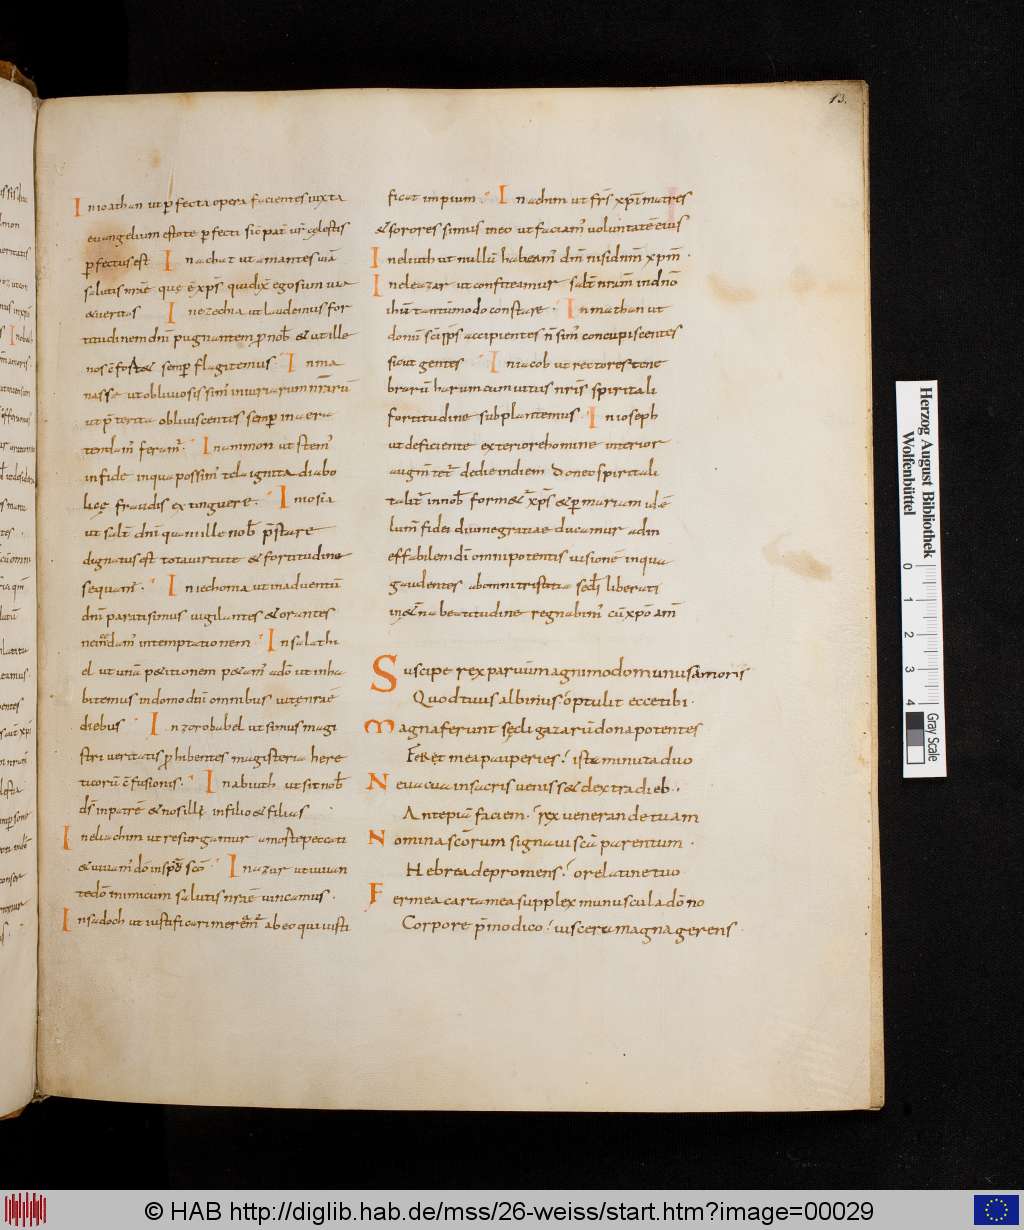 13.
I n ioathan ut p̄fecta opera facientes iuxta
euangelium estote p̄fecti sic̄ pat̄ ur̄ cęlestis
p̄fectus est I n achaz ut amantes uiā
salutis nrāe que ē xp̄s qui dix̄ ego sum uia
& ueritas I n ezechia ut laudemus for
titudinem dn̄i pugnantem p̄ nob̄ & ut ille
nos c̄fort& semp̄ flagitemus I n ma
nasse ut obliuiosi simꝰ iniuriarum nr̄arū
ut p̄terita obliuiscentes semp̄
tendamꝰ feramꝰ I n ammon ut stemꝰ
in fide in qua possimꝰ tela ignita diabo
licę fraudis extinguere. I n iosia
ut salut̄ dn̄i qua ille nob̄ p̄stare
dignatus est tota uirtute & fortitudine
sequamꝰ. I n iechonia ut in aduentū
dn̄i paratisimus uigilantes & orantes
in temptationem I n salathi
el ut unā petitionem petamꝰ a dō ut inha
bitemus in domo dn̄i omnibus uitę nrāe
diebus I n zorobabel ut simus magi
stri ueritatis p̄hibentes magisteria here
ticorū c̄fusionis. I n abiuth ut sit nob̄
ds̄ in patrē & nos illę in filio & filias
I n eliachim ut resurgamur a morte peccati
& uiuamꝰ dō in sp̄u scō I n azor ut iuuan
te dō inimicum salutis nrāe uincamus.
I n sadoch ut iustificari meremꝰ ab eo qui iusti
ficat impium I n achim ut fr̄s xp̄i matres
& sorores simus in eo ut faciamꝰ uoluntatē eius
I n eliuth ut nullū habeamꝰ dm̄ nisi dnm̄ xpm̄.
I n eleazar ut confiteamur salut̄ nrām in dn̄o
ihū tantūmodo constare. I n mathan ut
donū sc̄i sp̄s accipientes n̄ simꝰ concupiscentes
sicut gentes I n iacob ut rectores tene
brarū harum cum uitiis nrīs spiritali
fortitudine subplantemus I n ioseph
ut deficiente exteriore homine interior
augmētet̄ de die in diem donec spiritali
talit̄ in nob̄ form&ꝰ xp̄s & p̄ mariam idē
lum̄ fidei diuine gratiae ducamur ad in
effabilem dī omnipotentis uisionē in qua
gaudentes ab omni tristitia sc̄li liberati
in æt̄na beatitudine regnabimꝰ cū xpō am̄
S uscipe rex paruum agni modo munus amoris
Quod tuus albinus optulit ecce tibi.
M agna ferunt sęcli gazarū dona potentes
Fer & mea pauperies? ista minuta duo
N e uacua in sacris ueniss& dextra dieb.,
Ante piā faciem. rex uenerande tuam
N omina scōrum signaui scā parentum.
Hebrea depromens? ore latine tuo
F er mea carta mea supplex munuscula dōno
Corpore p̄ modico? uiscera magna gerens.
Herzog August Bibliothek
Wolfenbüttel
0 1 2 3 4
Gray Scale
© HAB http://diglib.hab.de/mss/26-weiss/start.htm?image=00029